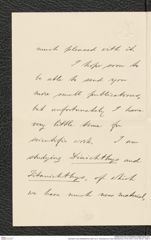 much pleased with it.
I hope soon to
be able to send you
more small publications,
but unfortunately I have
very little time for
scientific work. I am
studying Dinichthys and
Titanichthys, of which
we have much new material,